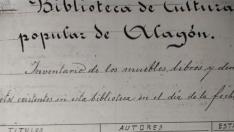 Biblioteca de Cultura
popular de Alagón.
Inventario de los muebles libros y dem
existentes en esta biblioteca en el día de la fecha
TITULOS AUTORES EST